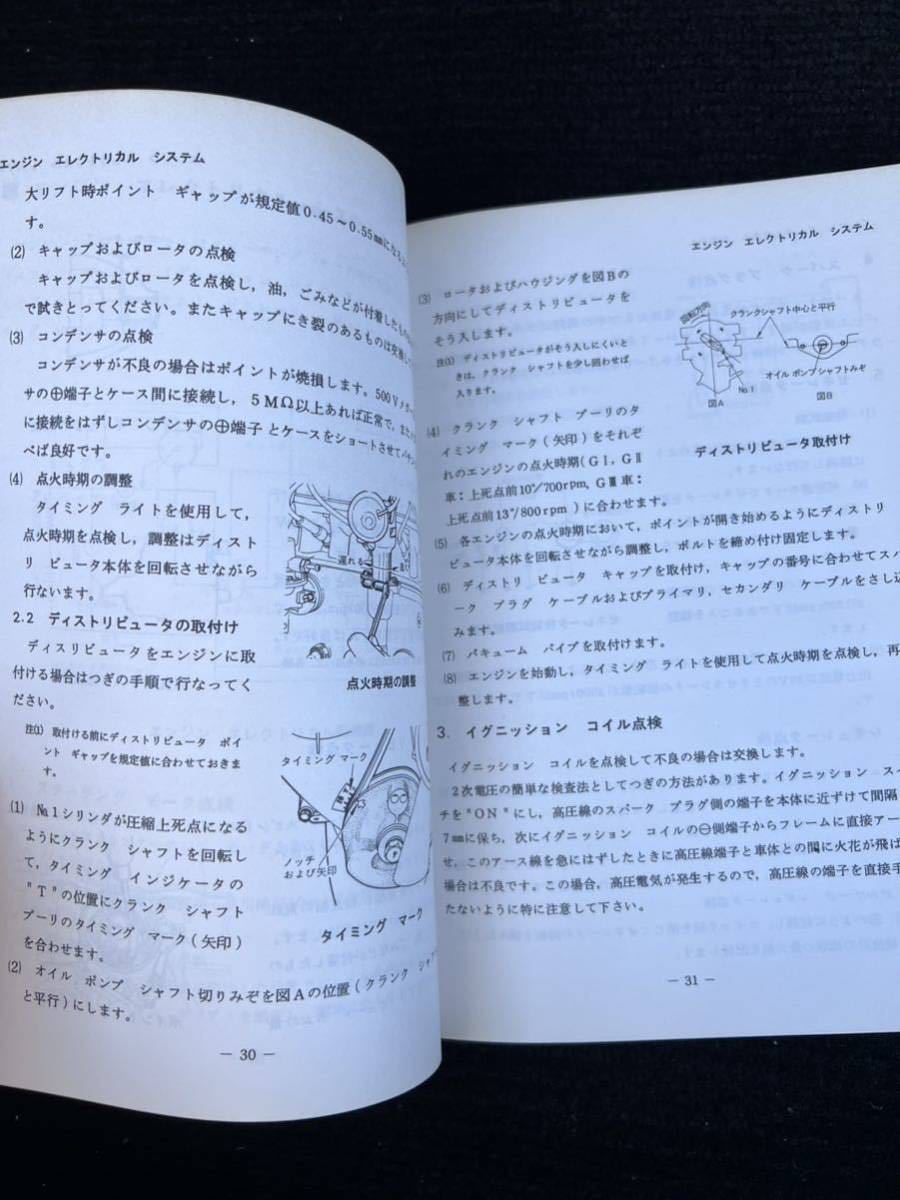 エンジン エレクトリカル システム
大リフト時ポイント ギャップが規定値0.45～0.55㎜になる
す。
(2) キャップおよびロータの点検
キャップおよびロータを点検し，油，ごみなどが付着したもの
で拭きとってください。またキャップにき裂のあるものは交換し
(3) コンデンサの点検
コンデンサが不良の場合はポイントが焼損します。500Vメガ
サの⊕端子とケース間に接続し，5MΩ以上あれば正常で，また
に接続をはずしコンデンサの⊕端子とケースをショートさせて
べば良好です。
(4) 点火時期の調整
タイミング ライトを使用して，
点火時期を点検し，調整はディスト
リ ビュータ本体を回転させながら
行ないます。
遅れる
点火時期の調整
2.2 ディストリビュータの取付け
ディスリビュータをエンジンに取
付ける場合はつぎの手順で行なってく
ださい。
注(1) 取付ける前にディストリビュータ ポイ
ント ギャップを規定値に合わせておきま
す。
(1) №1シリンダが圧縮上死点になる
ようにクランク シャフトを回転し
て，タイミング インジケータの
"T"の位置にクランク シャフト
プーリのタイミング マーク(矢印)
を合わせます。
タイミング マーク
ノッチ
および矢印
タイミング マーク
(2) オイル ポンプ シャフト切りみぞを図Aの位置(クランク シャ
と平行)にします。
― 30 ―
エンジン エレクトリカル システム
(3) ロータおよびハウジングを図Bの
方向にしてディストリビュータを
そう入します。
注(1) ディストリビュータがそう入しにくいと
きは，クランク シャフトを少し回わせば
入ります。
回転方向
クランクシャフト中心と平行
№1
オイル ポンプ シャフトみぞ
図A
図B
ディストリビュータ取付け
(4) クランク シャフト プーリのタ
イミング マーク(矢印)をそれぞ
れのエンジンの点火時期(GⅠ，GⅡ
車：上死点前10°/700rpm，GⅢ車：
上死点前13°/800rpm)に合わせます。
(5) 各エンジンの点火時期において，ポイントが開き始めるようにディストリ
ビュータ本体を回転させながら調整し，ボルトを締め付け固定します。
(6) ディストリ ビュータ キャップを取付け，キャップの番号に合わせてスパ
ーク プラグ ケーブルおよびプライマリ，セカンダリ ケーブルをさし込
みます。
(7) バキューム パイプを取付けます。
(8) エンジンを始動し，タイミング ライトを使用して点火時期を点検し，再
整します。
3. イグニッション コイル点検
イグニッション コイルを点検して不良の場合は交換します。
2次電圧の簡単な検査法としてつぎの方法があります。イグニッション スイ
チを"ON"にし，高圧線のスパーク プラグ側の端子を本体に近ずけて間隔
7㎜に保ち，次にイグニッション コイルの⊖側端子からフレームに直接アー
せ，このアース線を急にはずしたときに高圧線端子と車体との間に火花が飛ば
場合は不良です。この場合，高圧電気が発生するので，高圧線の端子を直接手
たないように特に注意して下さい。
― 31 ―